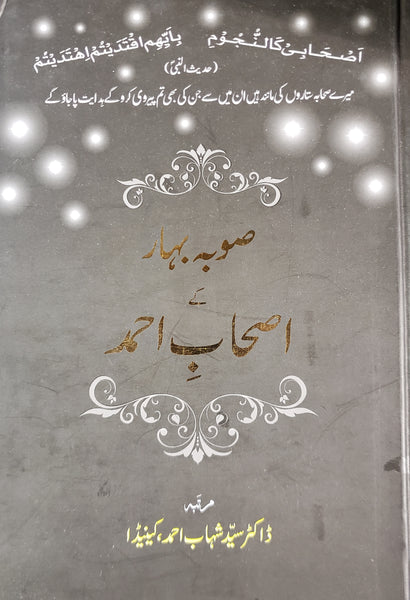 اَصْحَابِیْ کَالنُّجُوْمِ بِاَیِّهِمُ اقْتَدَیْتُمْ اِهْتَدَیْتُمْ
(حدیث النبیؐ)
میرے صحابہ ستاروں کی مانند ہیں ان میں سے جن کی بھی تم پیروی کرو گے ہدایت پا جاؤ گے
صوبہ بہار
کے
اصحابِ احمد
مرتبہ
ڈاکٹر سیّد شہاب احمد، کینیڈا